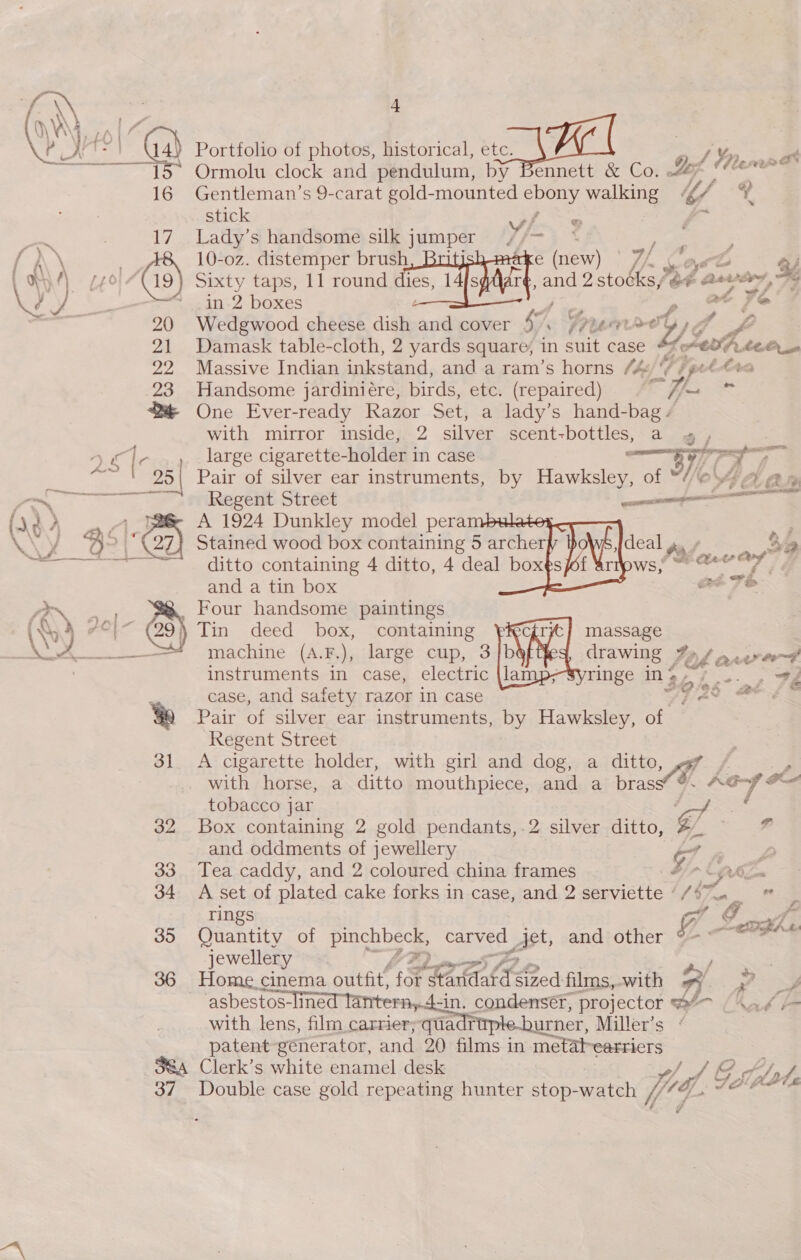 4
14) Portfolio of photos, historical, etc.
15 Ormolu clock and pendulum, by Bennett & Co.
16 Gentleman's 9-carat gold-mounted ebony walking
stick
17 Lady's handsome silk jumper
18 10-oz. distemper brush, British-make (new)
19) Sixty taps, 11 round dies, 14 square, and 2 stocks,
in 2 boxes
20 Wedgwood cheese dish and cover
21 Damask table-cloth, 2 yards square, in suit case
22 Massive Indian inkstand, and a ram's horns
23 Handsome jardinière, birds, etc. (repaired)
24 One Ever-ready Razor Set, a lady's hand-bag
with mirror inside, 2 silver scent-bottles, a
large cigarette-holder in case
25 Pair of silver ear instruments, by Hawksley, of
Regent Street
26 A 1924 Dunkley model perambulator
27) Stained wood box containing 5 archery bows, deal
ditto containing 4 ditto, 4 deal boxes of arrows,
and a tin box
28 Four handsome paintings
29) Tin deed box, containing electric massage
machine (A.F.), large cup, 3 bottles, drawing
instruments in case, electric lamp, syringe in
case, and safety razor in case
30 Pair of silver ear instruments, by Hawksley, of
Regent Street
31 A cigarette holder, with girl and dog, a ditto,
with horse, a ditto mouthpiece, and a brass
tobacco jar
32 Box containing 2 gold pendants, 2 silver ditto,
and oddments of jewellery
33 Tea caddy, and 2 coloured china frames
34 A set of plated cake forks in case, and 2 serviette
rings
35 Quantity of pinchbeck, carved jet, and other
jewellery
36 Home cinema outfit, for standard sized films, with
asbestos-lined lantern, 4-in. condenser, projector
with lens, film carrier, quadruple burner, Miller's
patent generator, and 20 films in metal carriers
36A Clerk's white enamel desk
37 Double case gold repeating hunter stop-watch